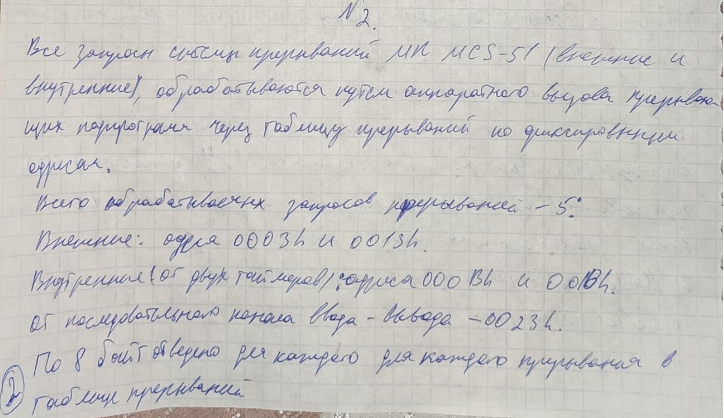 №2.
Все запросы системы прерываний МП MCS-51 (внешние и
внутренние), обрабатываются путем аппаратного вызова прерываю-
щих подпрограмм через таблицу прерываний по фиксированным
адресам.
Всего обрабатываемых запросов прерываний - 5:
Внешние: адреса 0003h и 0013h.
Внутренние (от двух таймеров): адреса 000Bh и 001Bh.
От последовательного канала ввода-вывода - 0023h.
По 8 байт отведено для каждого для каждого прерывания в
таблице прерываний
2